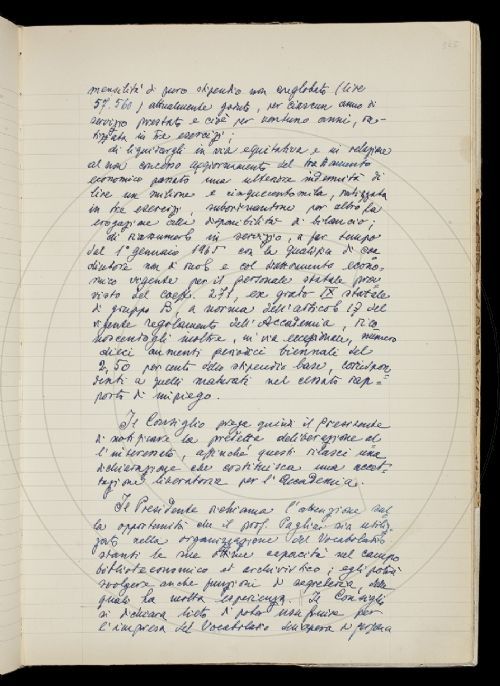 mensilità di puro stipendio non conglobato (lire
57.560) attualmente goduto, per ciascun anno di
servizio prestato e cioè per ventuno anni, ra-
tizzata in tre esercizi;
di liquidargli in via equitativa e in relazione
al non concesso aggiornamento del trattamento
economico passato una ulteriore indennità di
lire un milione e cinquecentomila, ratizzata
in tre esercizi, subordinandone per altro la
erogazione alle disponibilità di bilancio;
di riassumerlo in servizio, a far tempo
dal 1° gennaio 1965 con la qualifica di coa-
diutore non di ruolo e col trattamento econo-
mico vigente per il personale statale prov-
visto del coeff. 271, ex grado IX statale
di gruppo B, a norma dell'articolo 17 del
vigente regolamento dell'Accademia, rico-
noscendogli inoltre, in via eccezionale, numero
dieci aumenti periodici biennali del
2,50 per cento dello stipendio base, corrispon-
denti a quelli maturati nel cessato rap-
porto di impiego.
Il Consiglio prega quindi il Presidente
di notificare la predetta deliberazione al
l'interessato, affinché questi rilasci una
dichiarazione che costituisca una accet-
tazione liberatoria per l'Accademia.
Il Presidente richiama l'attenzione sul-
la opportunità che il prof. Pagliai sia utiliz-
zato nella organizzazione del Vocabolario
stanti le sue ottime capacità nel campo
biblioteconomico et archivistico; egli potrà
svolgere anche funzioni di segreteria, delle
quali ha molta esperienza. Il Consiglio
si dichiara lieto di poter usufruire per
l'impresa del Vocabolario dell'opera di persona